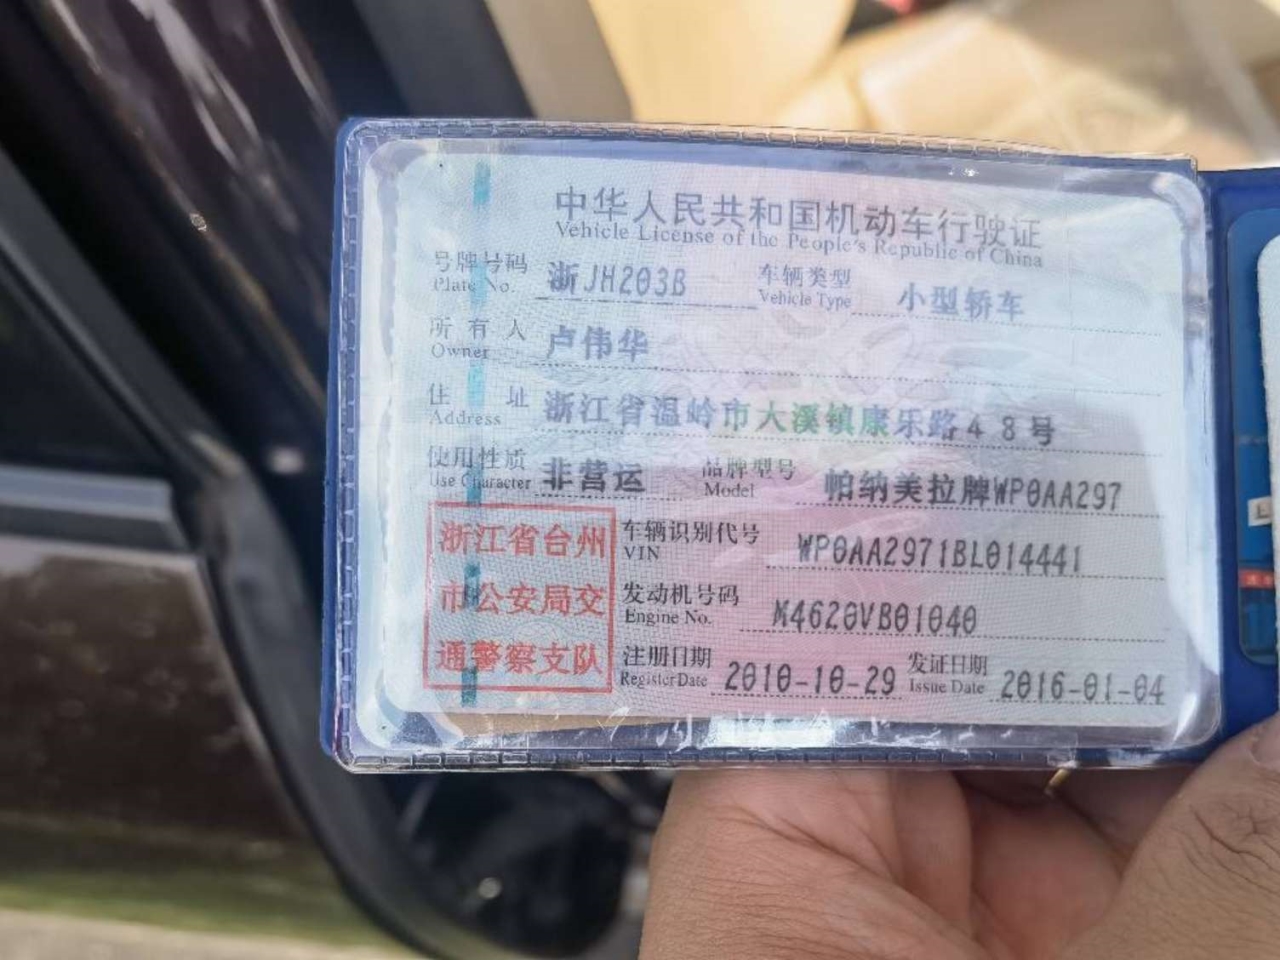 中华人民共和国机动车行驶证
Vehicle License of the People's Republic of China
号牌号码 浙JH203B 车辆类型 小型轿车
Plate No. Vehicle Type
所有人 卢伟华
Owner
住址 浙江省温岭市大溪镇康乐路48号
Address
使用性质 非营运 品牌型号 帕纳美拉牌WP0AA297
Use Character Model
浙江省台州
市公安局交
通警察支队
车辆识别代号 WP0AA2971BL014441
VIN
发动机号码 M4620VB01040
Engine No.
注册日期 2010-10-29 发证日期 2016-01-04
Register Date Issue Date